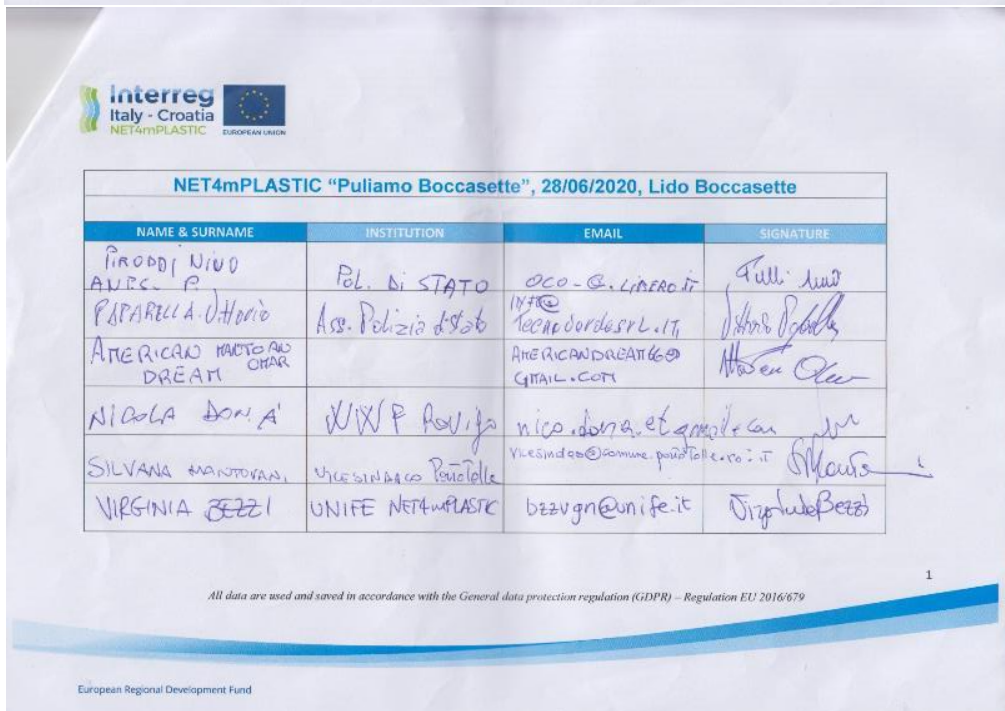 Interreg
Italy - Croatia
NET4mPLASTIC
EUROPEAN UNION
NET4mPLASTIC “Puliamo Boccasette”, 28/06/2020, Lido Boccasette
NAME & SURNAME INSTITUTION EMAIL SIGNATURE
PIRODDI NINO
ANPS. POL. Di STATO
PAPARELLA Vittorio Ass. Polizia d'Stato INFO@
AMERICAN MANTOAN OMAR
DREAM AMERICANDREAM66@
GMAIL.COM
NICOLA DONA' WWF Rovigo
SILVANA MANTOVANI VICESINDACO PortoTolle vicesindaco@comune.portotolle.ro.it
VIRGINIA BEZZI UNIFE NET4mPLASTIC bzzvgn@unife.it Virginia Bezzi
1
All data are used and saved in accordance with the General data protection regulation (GDPR) – Regulation EU 2016/679
European Regional Development Fund